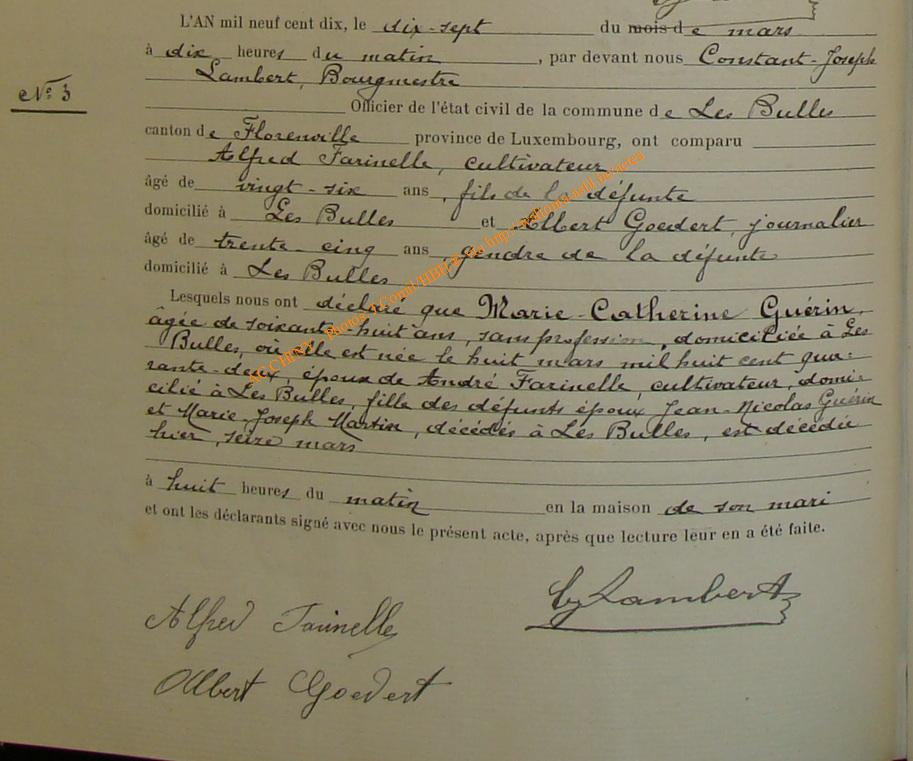 L'AN mil neuf cent dix, le dix-sept du mois de mars
à dix heures du matin, par devant nous Constant-Joseph
Lambert, Bourgmestre
N° 3
Officier de l'état civil de la commune de Les Bulles
canton de Florenville province de Luxembourg, ont comparu
Alfred Farinelle, cultivateur
âgé de vingt-six ans, fils de la défunte
domicilié à Les Bulles et Albert Goedert, journalier
âgé de trente-cinq ans gendre de la défunte
domicilié à Les Bulles
Lesquels nous ont déclaré que Marie-Catherine Guérin,
âgée de soixante-huit ans, sans profession, domiciliée à Les
Bulles, où elle est née le huit mars mil huit cent qua-
rante-deux, épouse de André Farinelle, cultivateur, domi-
cilié à Les Bulles, fille des défunts époux Jean-Nicolas Guérin
et Marie-Joseph Martin, décédés à Les Bulles, est décédée
hier, seize mars
à huit heures du matin en la maison de son mari
et ont les déclarants signé avec nous le présent acte, après que lecture leur en a été faite.
Lambert
Alfred Farinelle
Albert Goedert